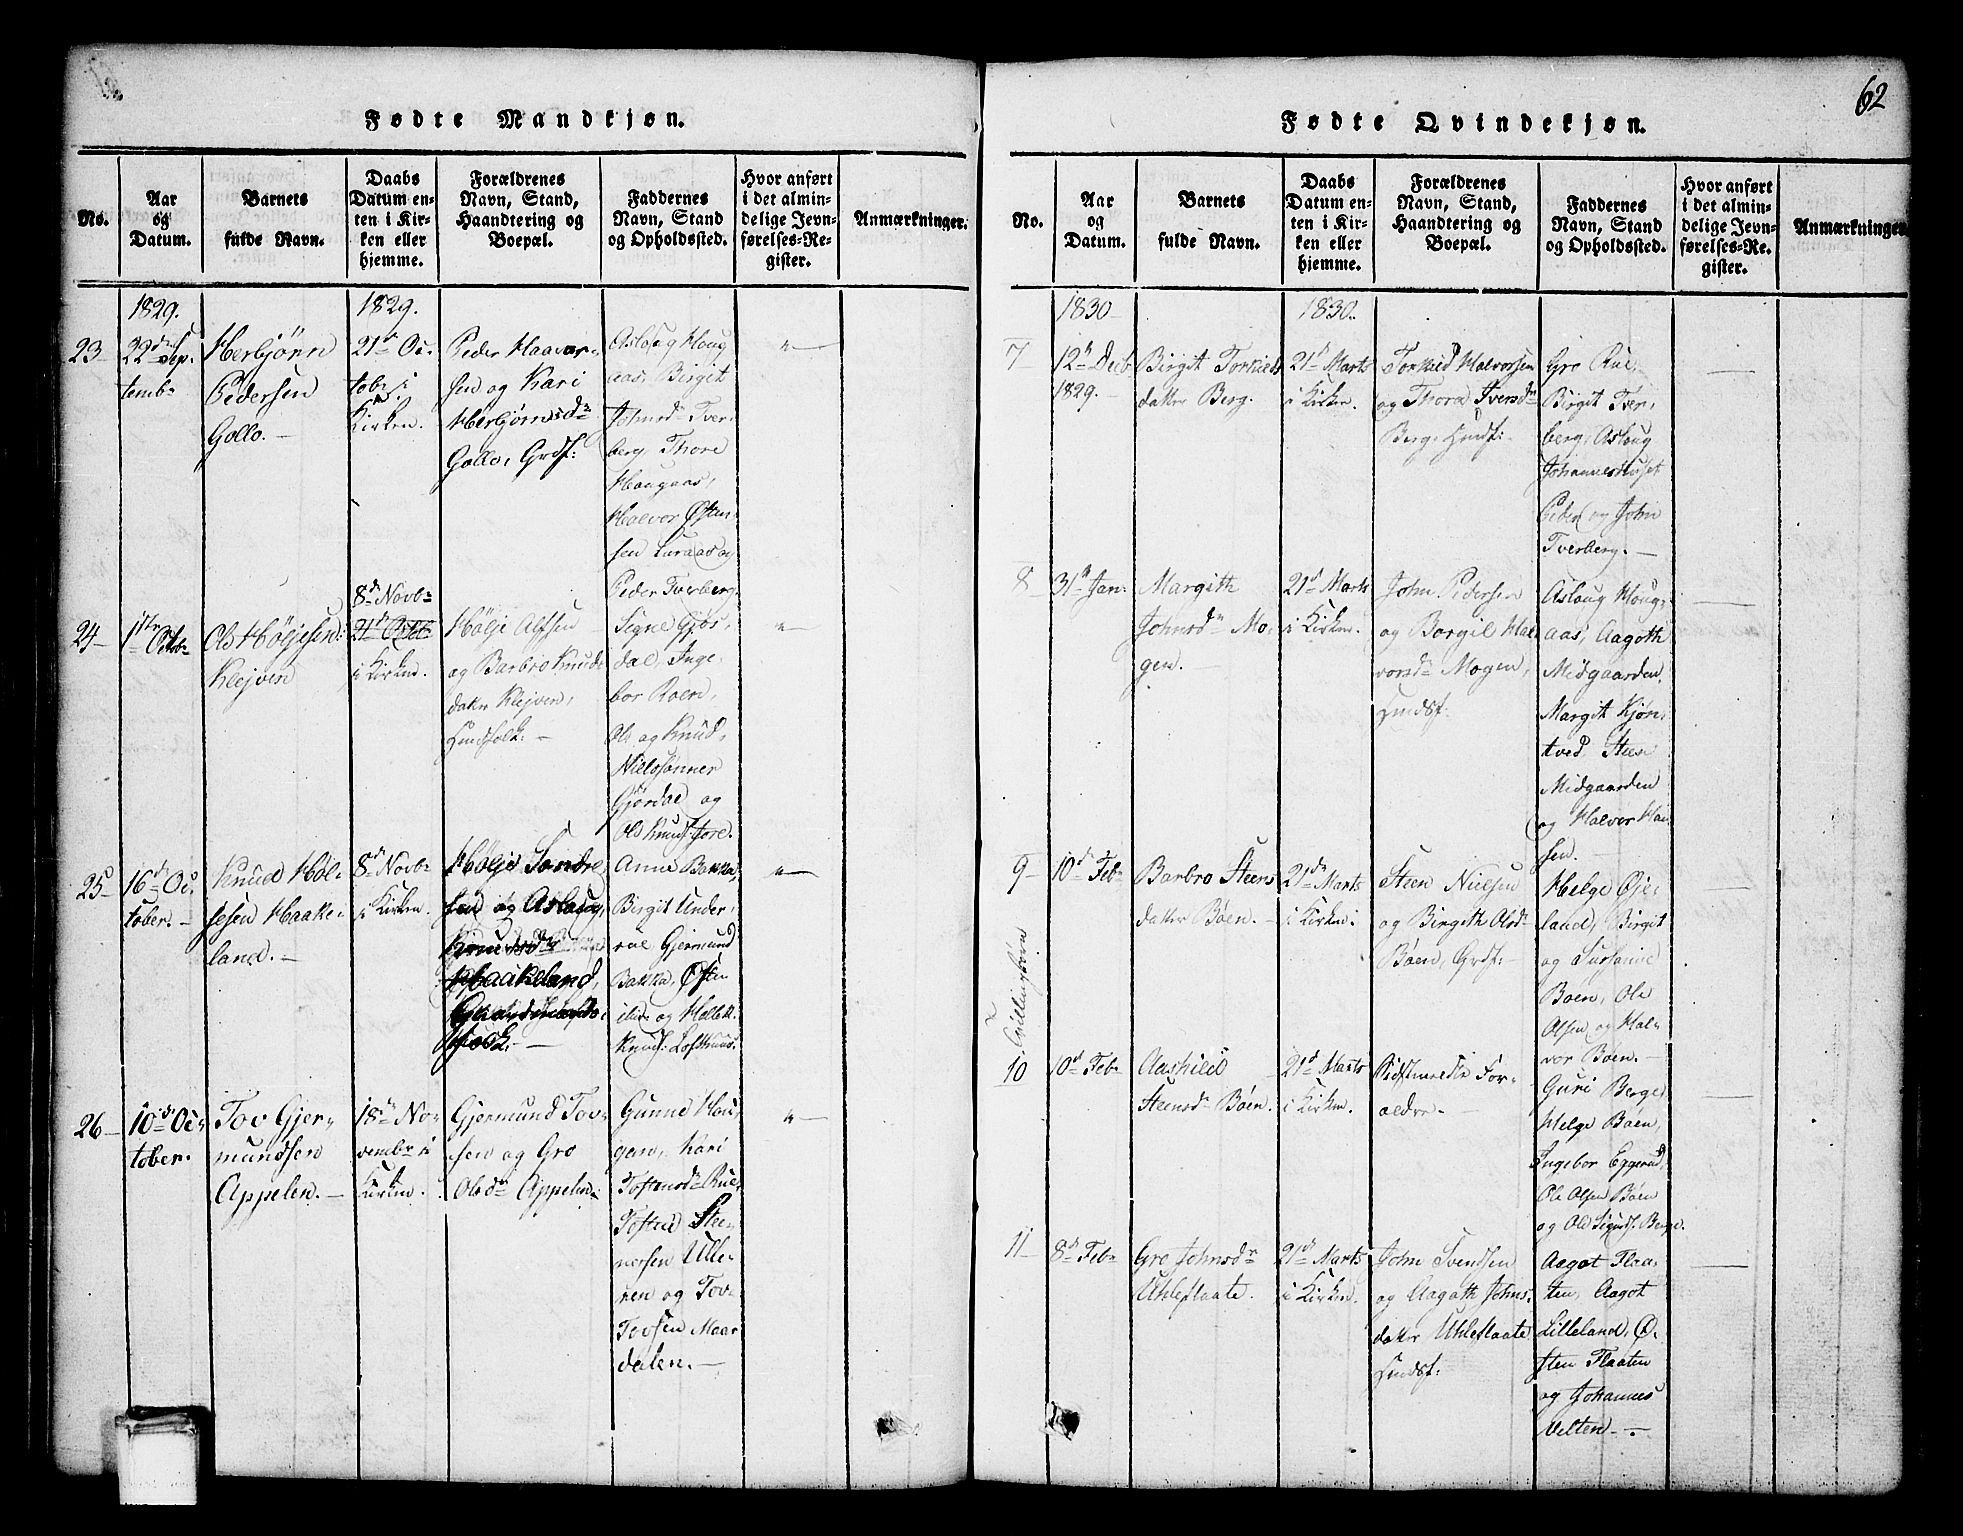 62
Fødte Mandkjøn.
No.
Aar
og
Datum.
Barnets
fulde Navn.
Daabs
Datum en-
ten i Kir-
ken eller
hjemme.
Forældrenes
Navn, Stand,
Haandtering og
Boepæl.
Faddernes
Navn, Stand
og Opholdssted.
Hvor anført
i det almin-
delige Jevn-
førelses-Re-
gister.
Anmærkninger.
1829.
1829.
23
22de Sep-
temb.
Herbjörn
Pedersen
Gollo.
21d Oc-
tob. i
Kirken.
Peder Haavar-
sen og Kari
Herbjörnsdr
Gollo, Grdf:
Aslaug Houg
aas, Birgit
Johnsd Tver-
berg, Thore
Hougaas,
Halvor Østen-
sen Luraas og
Peder Tverberg.
24
1ste Octob.
Ole Höljesen
Klejven
8d Novb.
21d Octob.
i Kirken.
Hölje Alfsen
og Barbro Knuds
datter Klejven,
Huusfolk.
Signe Gjös-
dal, Inge-
bor Roen,
Ole og Knud
Nielssönner
Gjördal og
Ole Knuds: Jore.
25
16d Oc-
tober.
Knud Höl-
jesen Haake-
land.
8d Novb.
i Kirken.
Hölje Sondre
sen og Aslaug
Knudsdr
Haakeland,
Anne Bakka,
Birgit Under-
rue Gjermund
Bakka, Østen
og Hellek
Knuds: Lofthuus.
26
10d Oc-
tober.
Tov Gjer-
mundsen
Appelen.
18d No-
vember i
Kirken.
Gjermund Tov-
sen og Gro
Olsdr Appelen.
Gunne Hou-
gen, Kari
Tostensdr Rue
Tosten Stee-
nersen Ulle-
ren og Tov
Tovsen Maar
dalen.
Fødte Qvindekjøn.
No.
Aar
og
Datum.
Barnets
fulde Navn.
Daabs
Datum en-
ten i Kir-
ken eller
hjemme.
Forældrenes
Navn, Stand,
Haandtering og
Boepæl.
Faddernes
Navn, Stand
og Opholdssted.
Hvor anført
i det almin-
delige Jevn-
førelses-Re-
gister.
Anmærkninger
1830
1830.
7
12d Decb.
1829.
Birgit Torkilds
datter Berg.
21d Marts
i Kirken.
Torkild Halvorsen
og Thora Iversdr
Berg, Huusf:
Gro Rue
Birgit Tver-
berg, Aslaug
Johanneshuset
Peder og John
Tverberg.
8
31te Jan:
Margith
Johnsdr Mo-
gen.
21d Marts
i Kirken.
John Pedersen
og Borgil Hal
vorsdr Mogen,
Huusf:
Aslaug Houg-
aas, Aagoth
Midgaarden,
Margit Kjön-
tved Steen
Midgaarden
og Halvor Han-
sen.
Tvillingbörn
9
10d Feb.
Barbro Steens
datter Böen.
21d Marts
i Kirken.
Steen Nielsen
og Birgith Olsdr
Böen, Grdf:
Helge Øje-
land, Birgit
og Sussanne
Böen, Ole
Olsen og Hal-
vor Böen.
10
10d Feb.
Aashild
Steensdr Böen.
21d Marts
i Kirken.
Sidstmeldte For-
ældre.
Guri Berge
Helge Böen,
Ingebor Eggerud,
Ole Olsen Böen
og Ole Sigurds. Berge.
11
8d Feb.
Gro Johnsdr
Uhleflaate.
21d Marts
i Kirken.
John Svendsen
og Aagoth Johns-
datter Uhleflaate
Huusf:
Aagot Flaa-
ten, Aagot
Lilleland, Ø-
sten Flaaten
og Johannes
Velten.